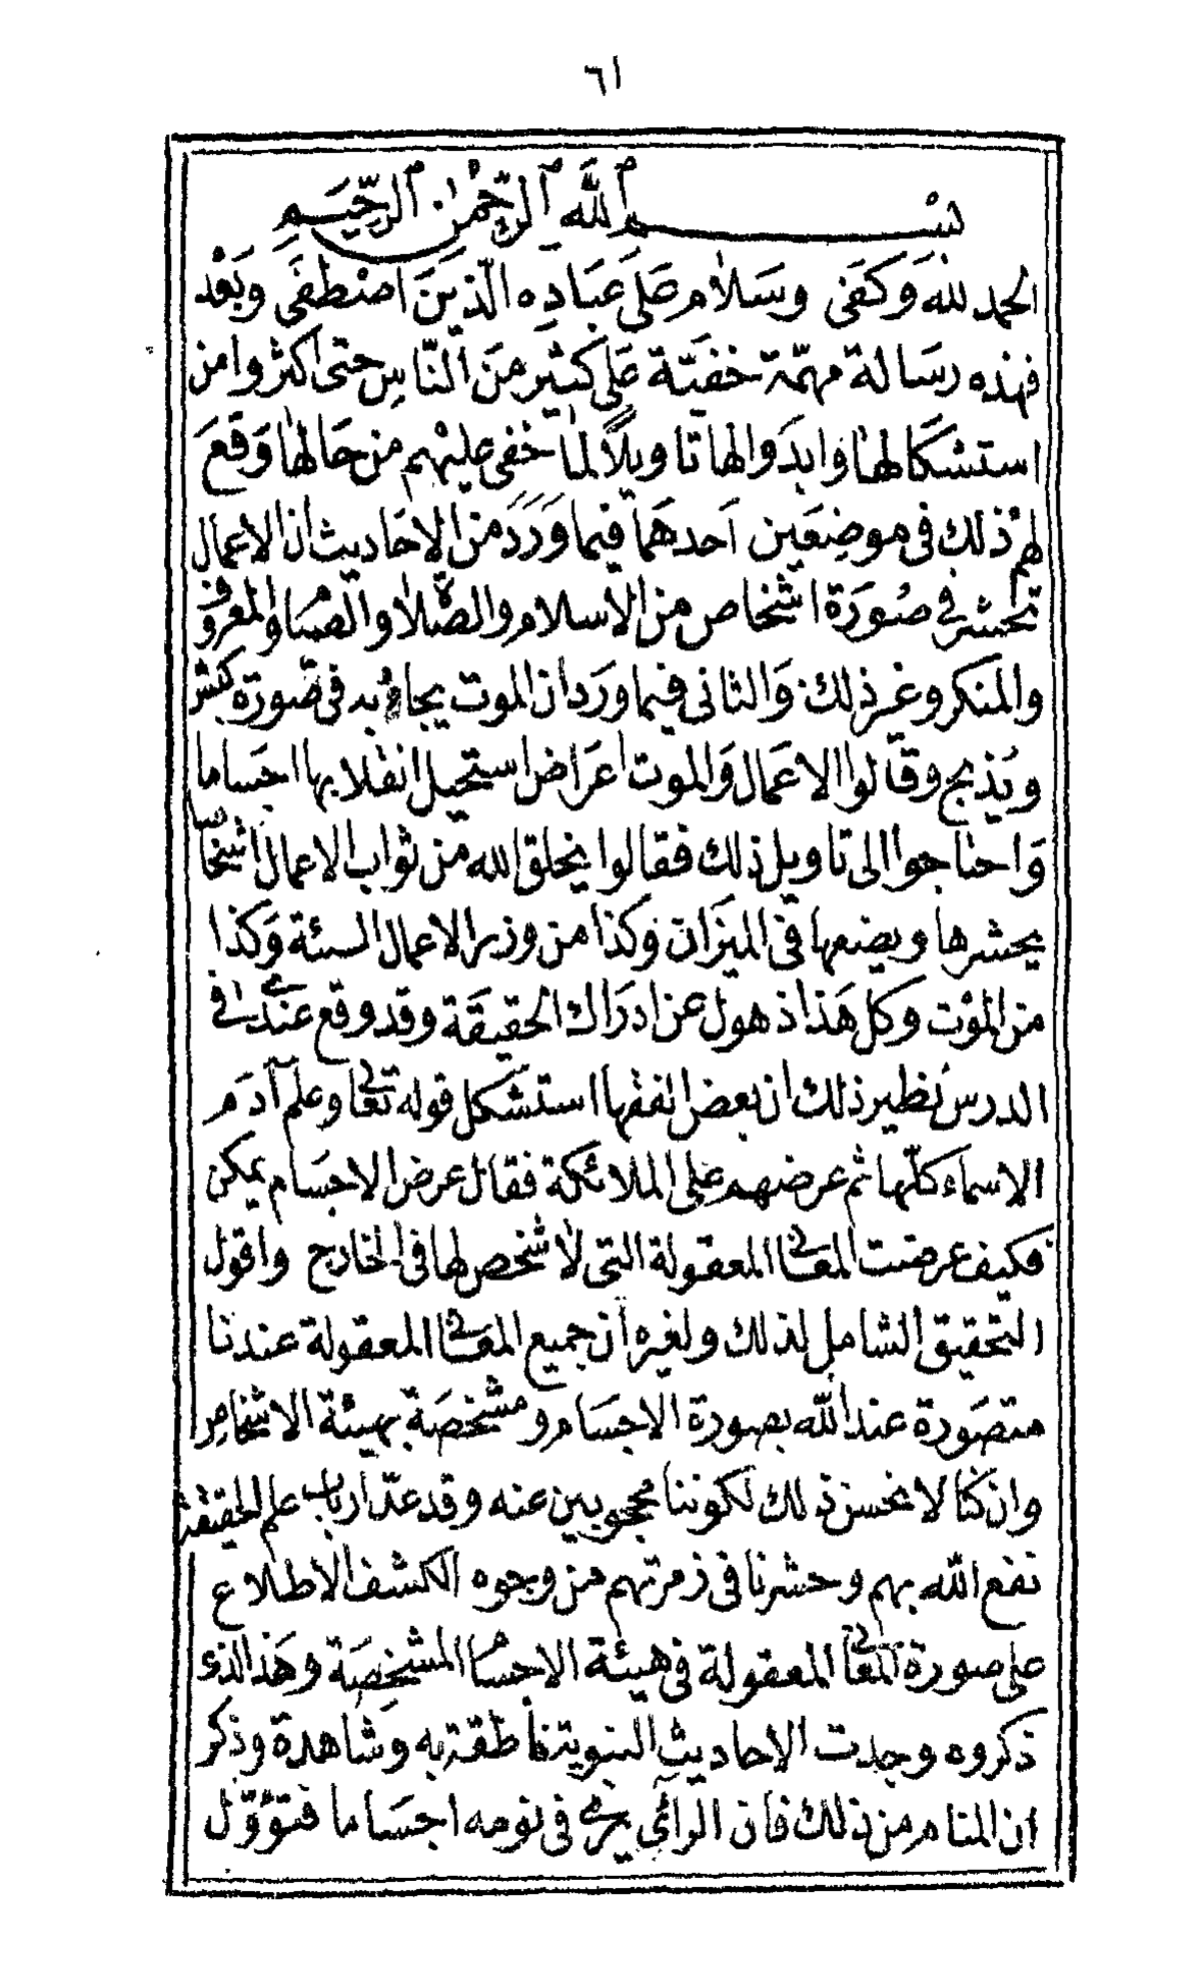 ٦١
بسم الله الرحمن الرحيم
الحمد لله وَكَفَى وسَلَام عَلَى عبَادِه الّذينَ اصْطَفَى وبَعْد
فهذه رسَالة مهمّة خفيّة عَلى كثير منَ النَّاسِ حتى اكثروا من
استشكَالها وابدَوا لها تاويلاً لما خفى عليهم من حَالها وَقَعَ
لهم ذلك فى موضعَين اَحدهمَا فيما وَرَدَ من الاحَاديث ان الاعمال
تحشر فى صُورَة اشخاص من الاسلام والصّلاة والصّيام والمعروف
والمنكر وغير ذلك وَالثانى فيما ورَد ان الموت يجاء به فى صورة كبش
ويُذبح وقالوا الاعمَال وَالموت اعرَاض استحيل انقلابها اجسَاما
وَاحتاجوا الى تاويل ذلك فقالوا يخلق الله من ثواب الاعمال اشخاصا
يحشرها ويضعها فى الميزَان وَكذا من وزر الاعمال السيئة وَكذا
من الموْت وكل هَذا ذهول عن ادرَاك الحقيقَة وقد وقع عندى فى
الدرس نظير ذلك ان بعض الفقها استشكل قوله تعالى وعلم آدَم
الاسماء كلّها ثم عرضهم على الملائكة فقال عرض الاجسَام يمكن
فكيف عرضت المعانى المعقولة التى لا شخص لها فى الخارج واقول
التحقيق الشامل لذلك ولغيره ان جميع المعانى المعقولة عندنا
متصَورة عند الله بصورة الاجسَام ومشخصَة بهيئة الاشخاص
وان كنا لا نحسن ذلك لكوننا محجوبين عنه وقد عدّ ارباب علم الحقيقة
نفع الله بهم وحشرنا فى زمرتهم من وجوه الكشف الاطلاع
على صورة المعانى المعقولة فى هيئة الاجسام المشخصَة وهَذا الذى
ذكروه وجدت الاحاديث النبوية ناطقة به وَشاهدة وذكر
ان المنام من ذلك فان الرائى يرى فى نومه اجسَاما فتؤوّل